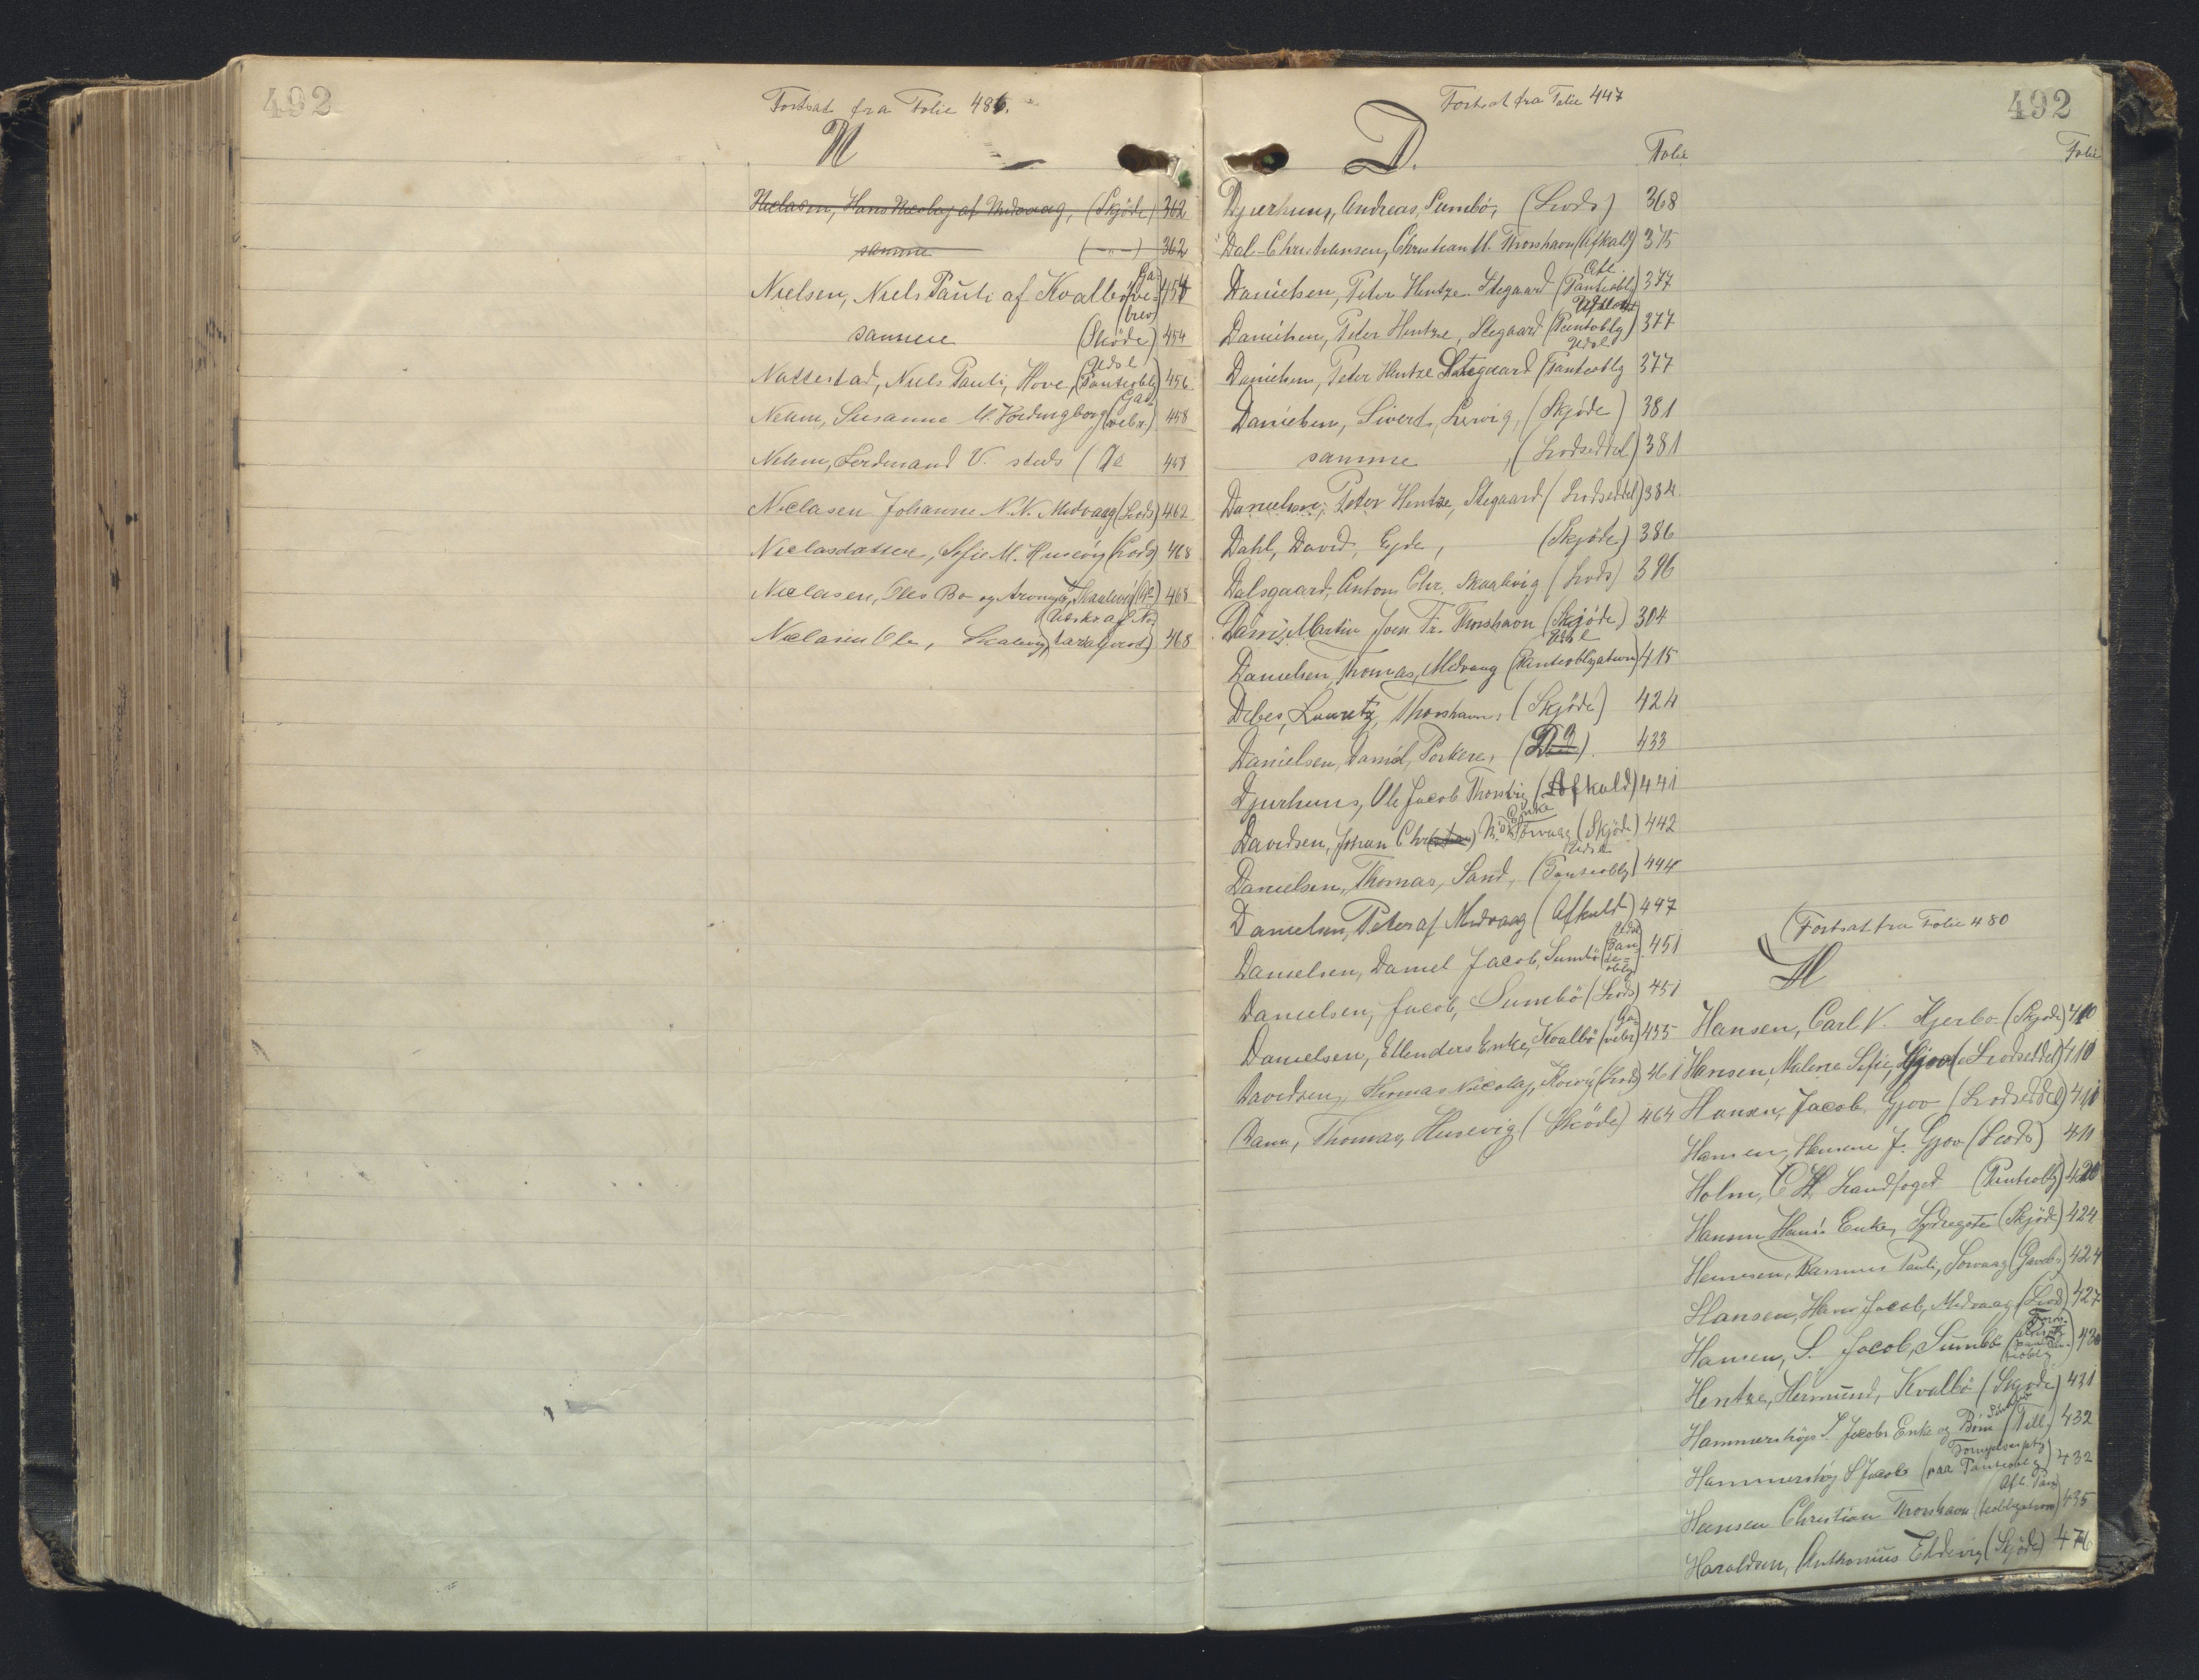 492
Fortsat fra Folie 486.
N
Niclasen, Hans Nicolaj af Midvaag, (Skjöde) 362
samme (-"-) 362
Nielsen, Niels Pauli af Kvalbö (Ga-vebrev) 454
samme (Sköde) 454
Nattestad, Niels Pauli, Hove, (Udsl Panteoblg) 456
Nehm, Susanne M. Vordingborg (Gavebr.) 458
Nehm, Ferdinand V. steds (Do 458
Niclasen Johanne N.N. Midvaag (Lods) 462
Niclasdatter, Sofie M. Husevig (Lods) 468
Niclasen, Oles Bo og Skaalevig (Do) 468
Niclasen Ole, Skalevig, (Udskr af No-tarialprot) 468
492
Fortsat fra Folie 447
D.
Folie
Folie
Djurhuus, Andreas, Sumbö, (Lods) 368
Dal-Christiansen, Christian M. Thorshavn (Afkald) 375
Danielsen, Peter Hentze Stegaard (Afl. Panteoblg) 377
Danielsen, Peter Hentze, Stegaard (Udslettet Panteoblg) 377
Danielsen, Peter Hentze Stegaard (Udsl Panteoblg 377
Danielsen, Sivert, Lervig, (Skjöde) 381
samme, (Lodseddel) 381
Danielsen, Peter Hentze, Stegaard (Lodseddel) 384
Dahl, David, Eyde, (Skjöde) 386
Dalsgaard, Anton Chr. Skaalevig (Lods) 396
Dam, Martin Joen Fr. Thorshavn (Skjöde) 304
Danielsen, Thomas, Midvaag (Udsl Panteobligation) 415
Debes, Lauritz, Thorshavn, (Skjöde) 424
Danielsen, Daniel, Porkere, (Do) 433
Djurhuus, Ole Jacob Thorsvig (Afkald) 441
Davidsen, Johan Chr(istian) N.'s Enke Sörvaag (Skjöde) 442
Danielsen, Thomas, Sand, (Udsl Panteoblg) 444
Danielsen, Peter af Midvaag (Afkald) 447
Danielsen, Daniel Jacob, Sumbö (Udsl Pan-te-oblg) 451
Danielsen, Jacob, Sumbö (Lods) 451
Danielsen, Ellenders Enke, Kvalbö (Ga-vebr) 455
Davidsen, Thomas Nicolaj, (Lods) 461
Dam, Thomas, Husevig (Sköde) 464
(Fortsat fra Folie 480
H
Hansen, Carl V. Hjerbo (Skjöde) 410
Hansen, Malene Sofie, Gjov (Lodseddel) 410
Hansen, Jacob, Gjov (Lodseddel) 411
Hansen, Hansine J. Gjov (Lods) 411
Holm, C H, Landfoged (Panteoblg) 420
Hansen Hans's Enke, Sydregöte (Skjöde) 424
Hennesen, Rasmus Pauli, Sorvaag (Gavebr) 424
Hansen, Hans Jacob, Midvaag (Lods) 427
Hansen, S. Jacob, Sumbö 430
Hentze, Hermund, Kvalbö (Skjöde) 431
Hammershöjs S. Jacobs Enke og Börn Sumbö (Till) 432
Hammershöj S Jacob (Fornyelsespty paa Panteoblg) 432
Hansen Christian Thorshavn (Afl. Pan-teobligation) 435
Haraldsen, Anthonius Eldevig (Skjöde) 476